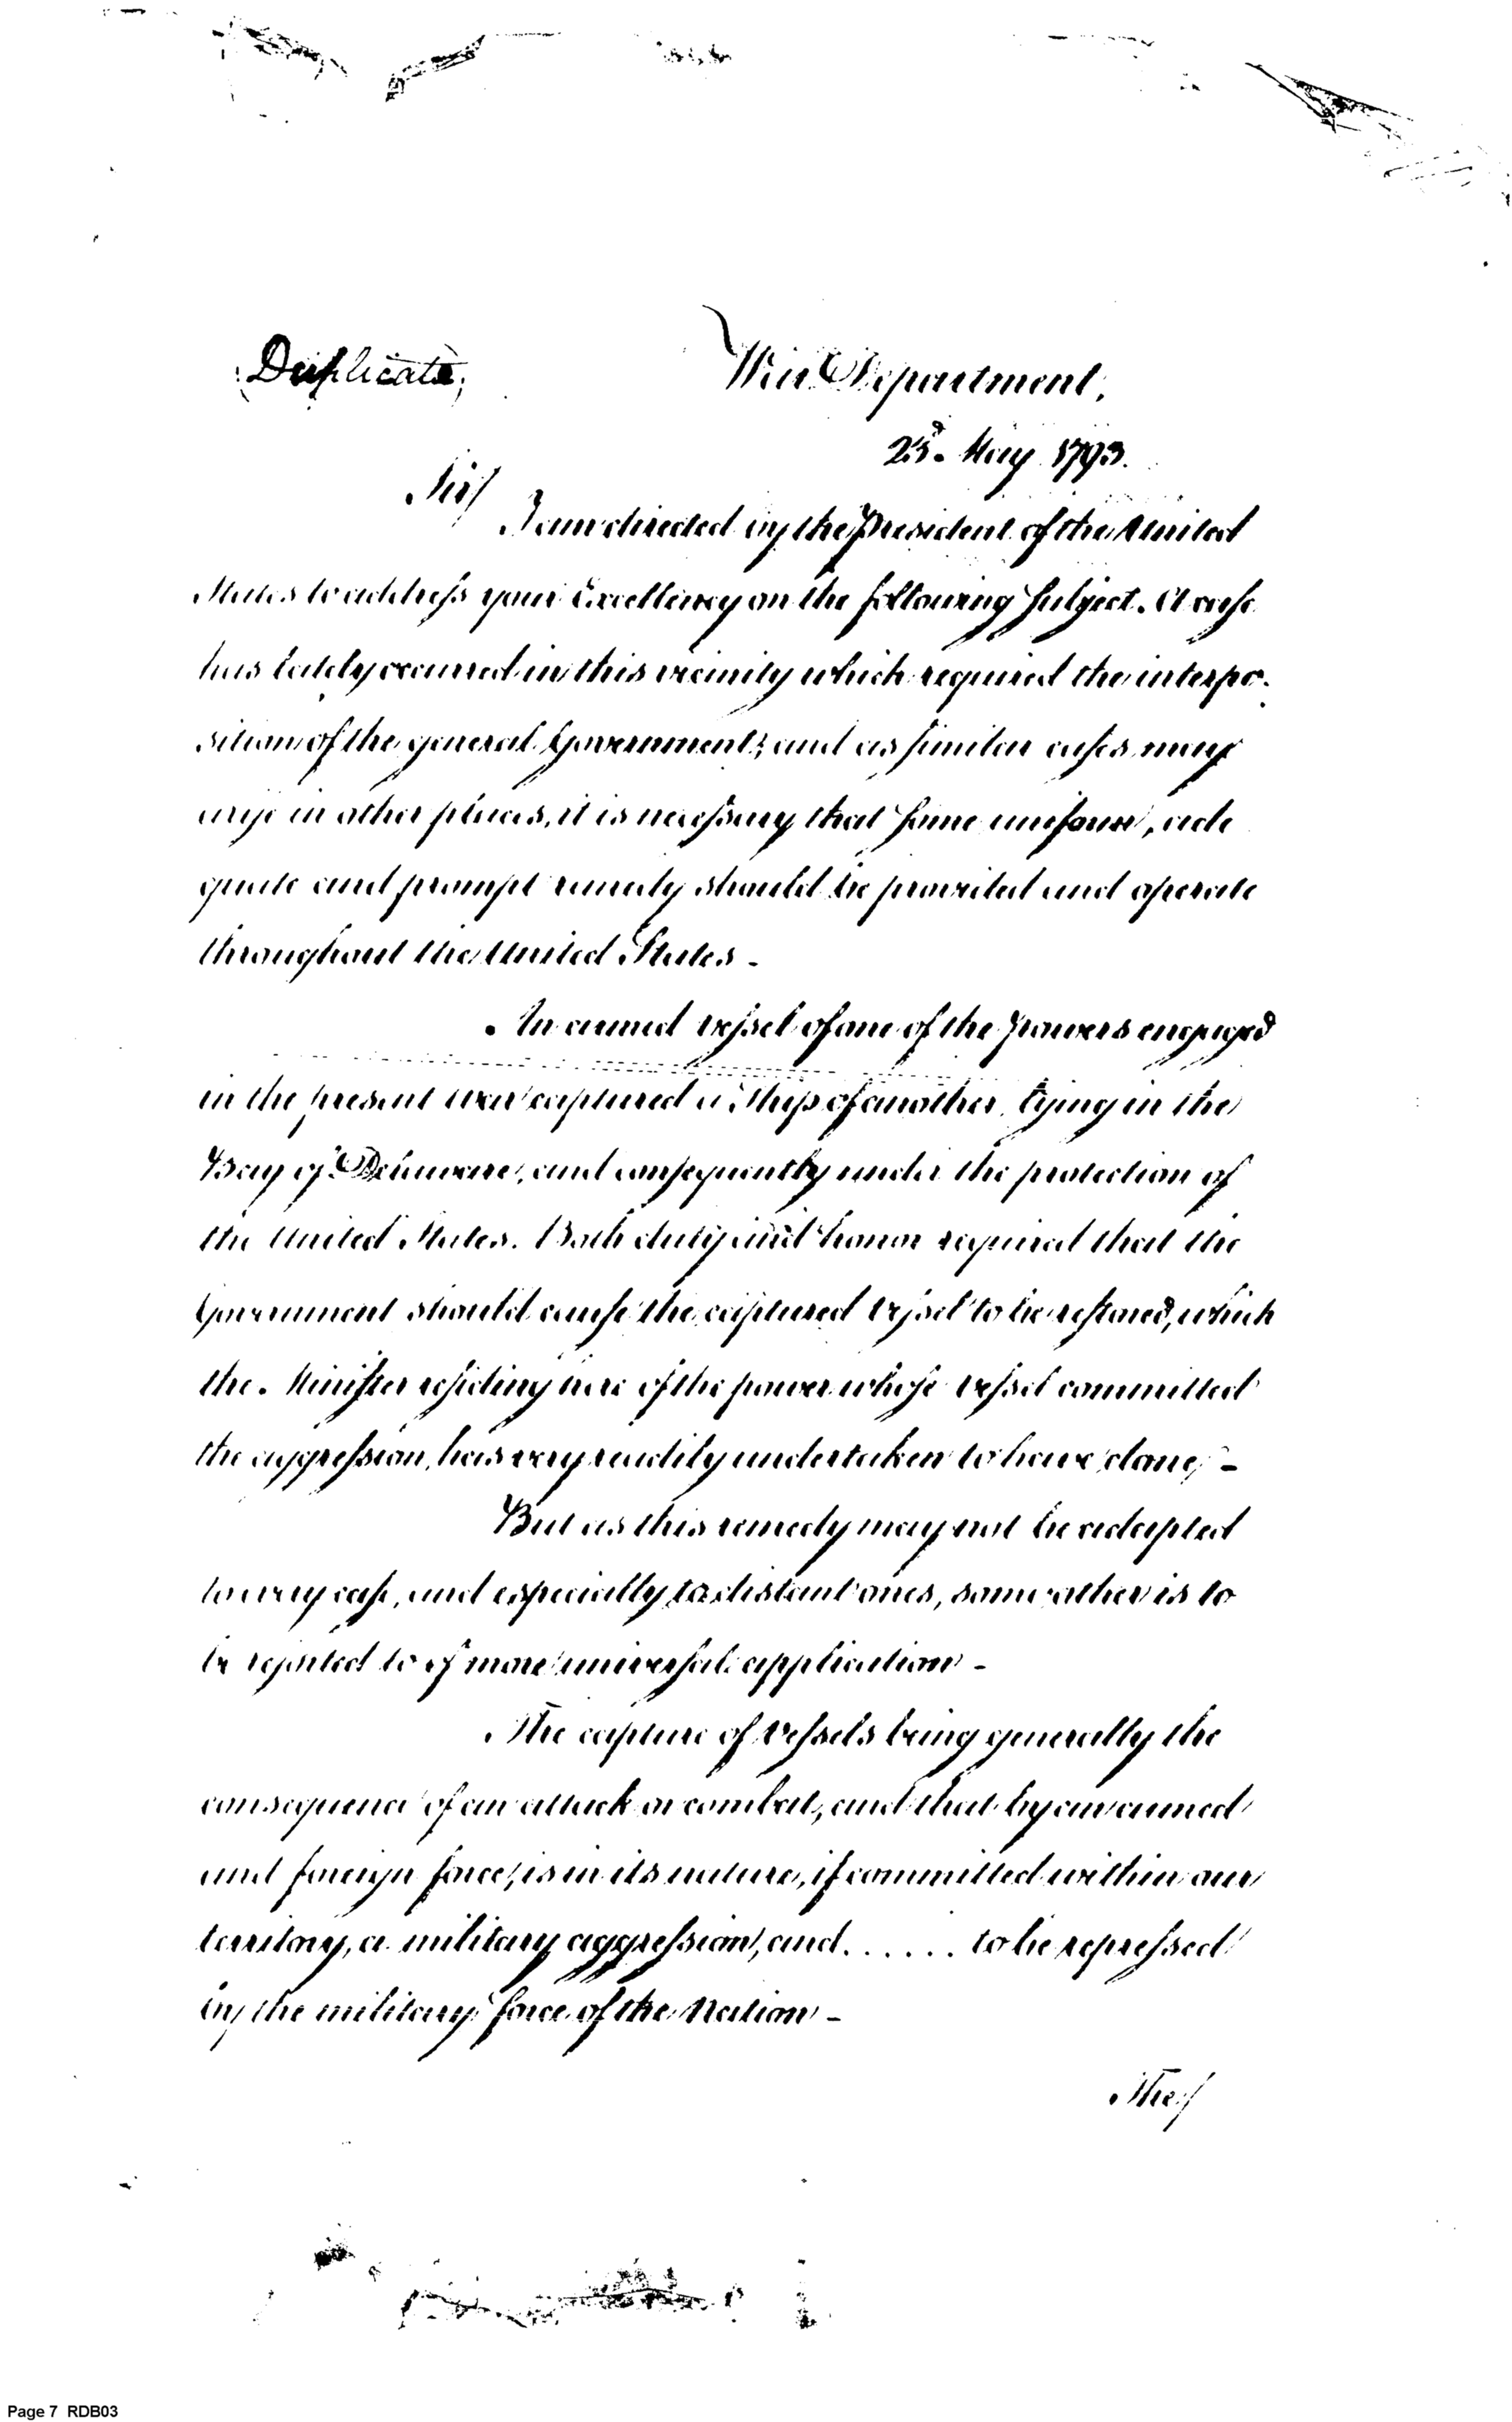 Duplicate,
War Department,
23d. May 1793.
Sir/
I am directed by the President of the United
States to address your Excellency on the following subject. A case
has lately occurred in this vicinity which required the interpo-
sition of the general Government; and as similar cases may
arise in other places, it is necessary that some uniform, ade
quate and prompt remedy should be provided and operate
throughout the United States -
An armed vessel of one of the powers engaged
in the present war captured a Ship of another, lying in the
Bay of Delaware, and consequently under the protection of
the United States. Both duty and honor required that the
Government should cause the captured vessel to be restored, which
the Minister residing here of the power whose vessel committed
the aggression, has very readily undertaken to have done, -
But as this remedy may not be adapted
to every case, and especially to distant ones, some other is to
be resorted to of more universal application -
The capture of vessels being generally the
consequence of an attack or combat, and that by an armed
and foreign force, is in its nature, if committed within our
territory, a military aggression, and ...... to be repressed
by the military force of the Nation -
The/
Page 7 RDB03